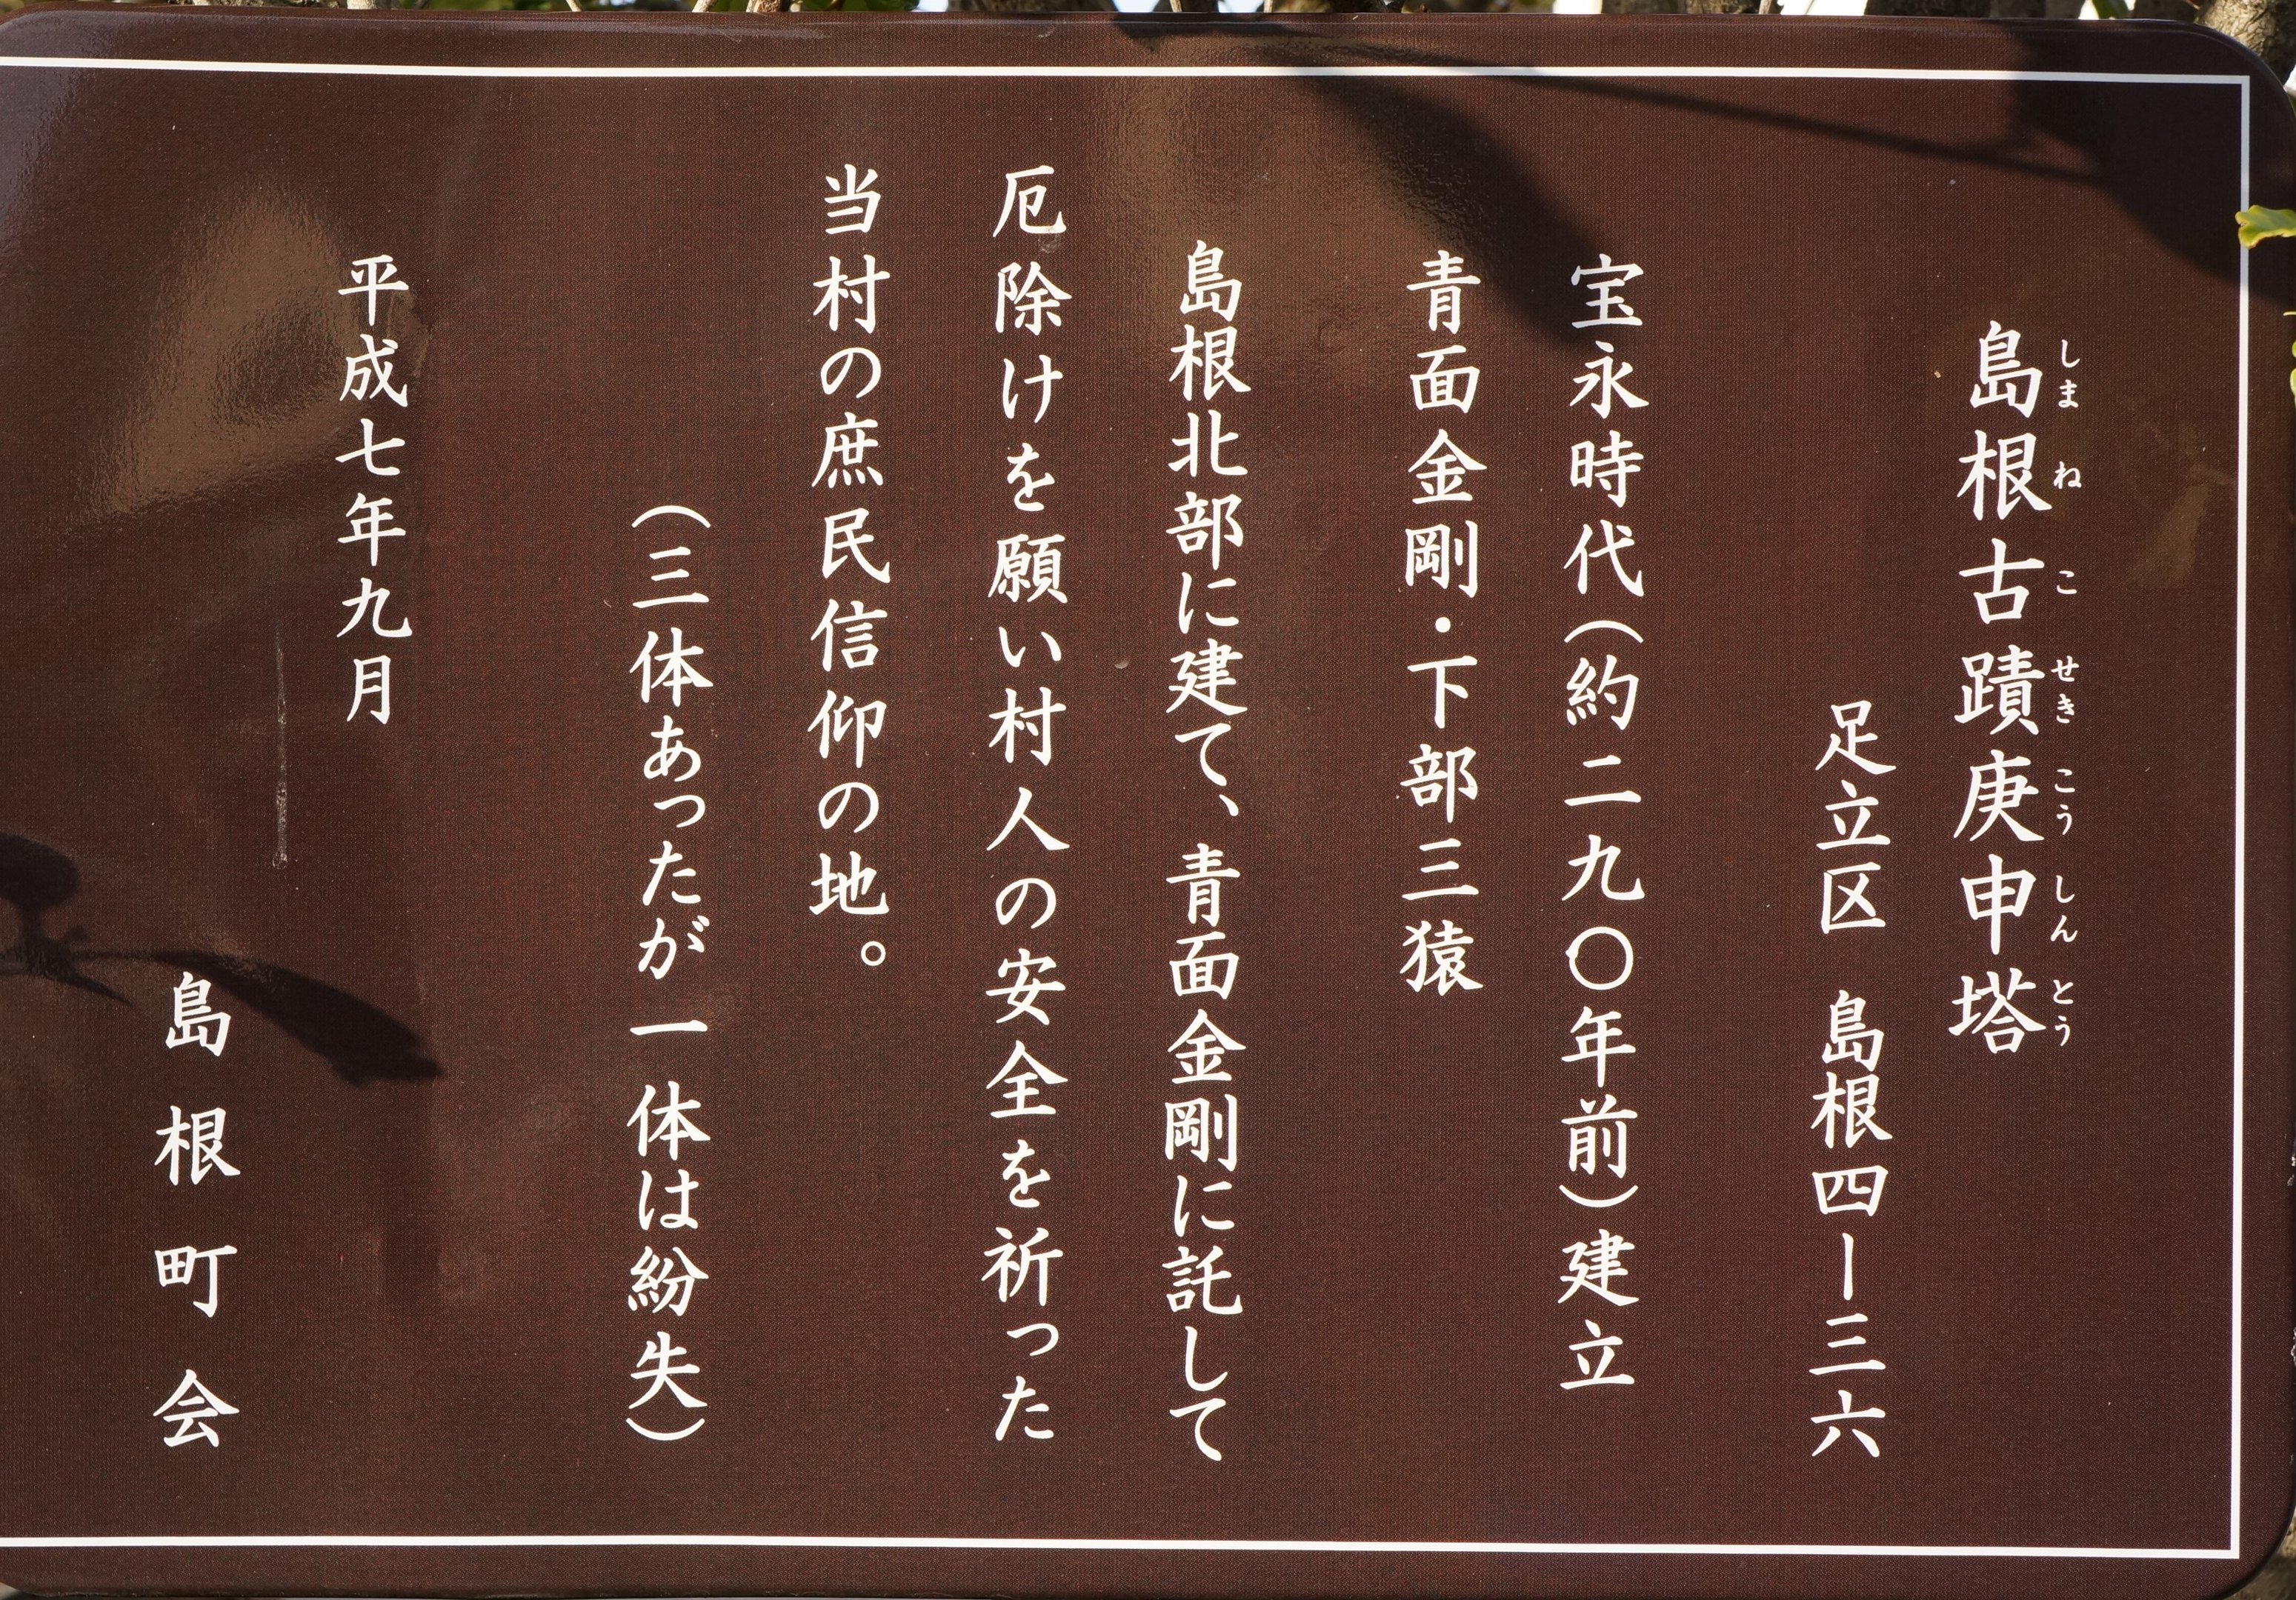 島根古蹟庚申塔
しまねこせきこうしんとう
足立区 島根四ー三六
宝永時代(約二九〇年前)建立
青面金剛・下部三猿
島根北部に建て、青面金剛に託して
厄除けを願い村人の安全を祈った
当村の庶民信仰の地。
(三体あったが一体は紛失)
平成七年九月
島根町会